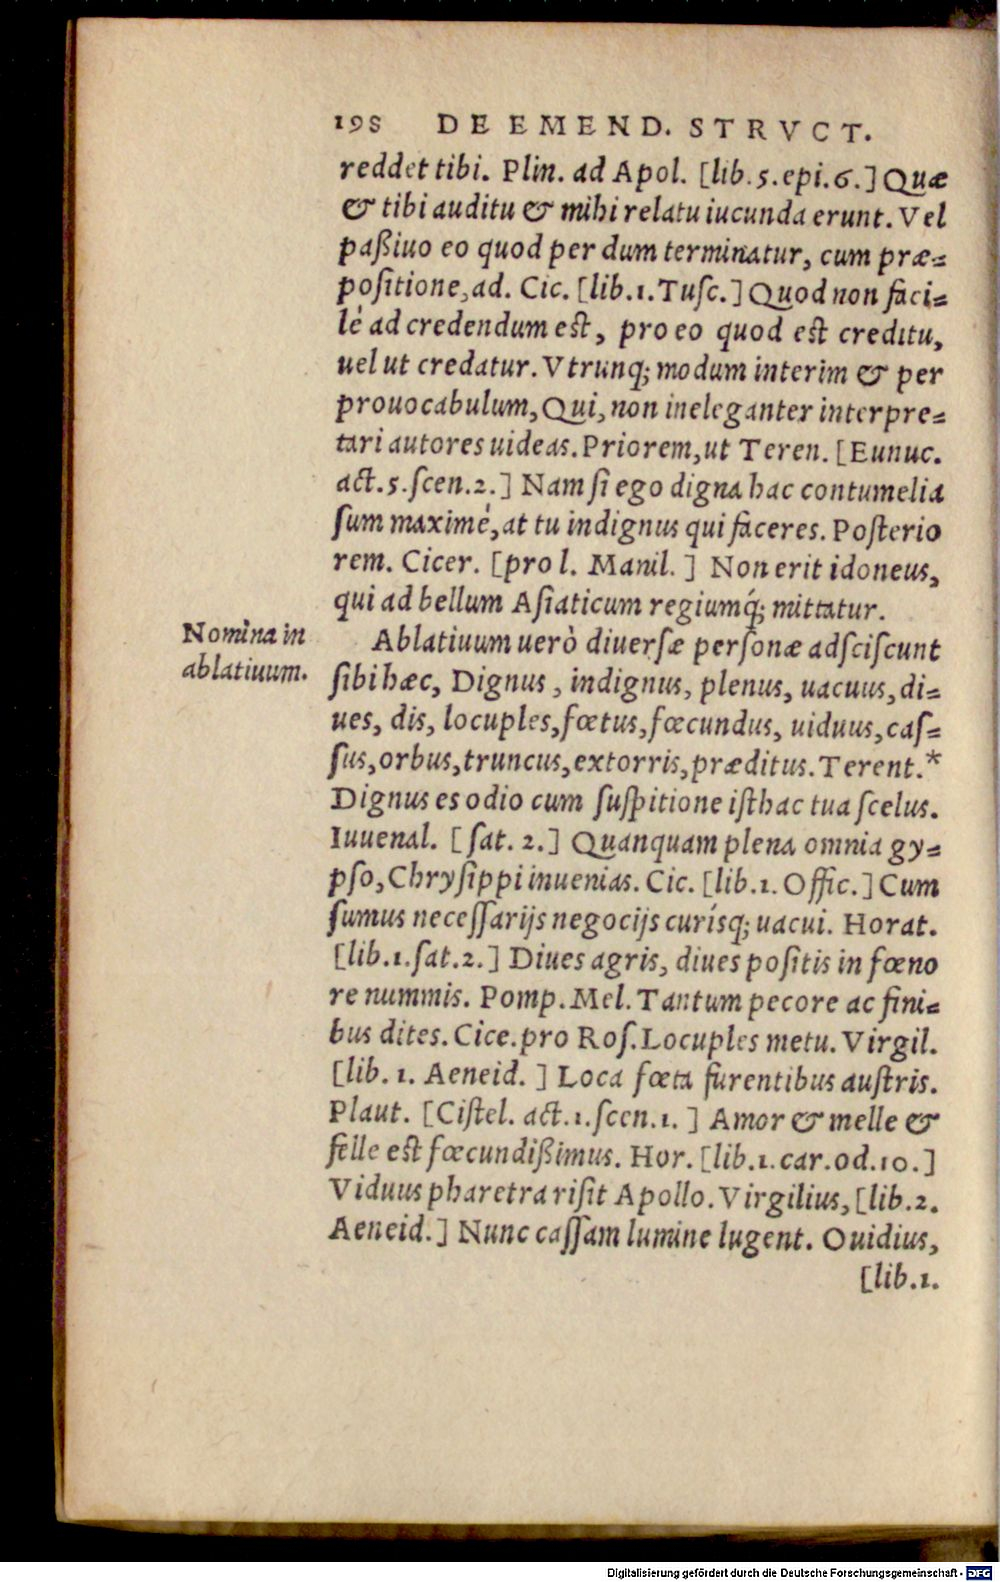 198 DE EMEND. STRVCT.
reddet tibi. Plin. ad Apol. [lib.5.epi.6.] Quæ
& tibi auditu & mihi relatu iucunda erunt. Vel
paßiuo eo quod per dum terminatur, cum præ-
positione, ad. Cic. [lib.1.Tusc.] Quod non faci-
lè ad credendum est, pro eo quod est creditu,
uel ut credatur. Vtrunq; modum interim & per
prouocabulum, Qui, non ineleganter interpre-
tari autores uideas. Priorem, ut Teren. [Eunuc.
act.5.scen.2.] Nam si ego digna hac contumelia
sum maximè, at tu indignus qui faceres. Posterio
rem. Cicer. [pro l. Manil. ] Non erit idoneus,
qui ad bellum Asiaticum regiumq́; mittatur.
Nomina in
ablatiuum.
Ablatiuum uerò diuersæ personæ adsciscunt
sibi hæc, Dignus, indignus, plenus, uacuus, di-
ues, dis, locuples, fœtus, fœcundus, uiduus, cas-
sus, orbus, truncus, extorris, præditus. Terent.*
Dignus es odio cum suspitione isthac tua scelus.
Iuuenal. [sat. 2.] Quanquam plena omnia gy-
pso, Chrysippi inuenias. Cic. [lib.1. Offic.] Cum
sumus necessarijs negocijs curísq; uacui. Horat.
[lib.1.sat.2.] Diues agris, diues positis in fœno
re nummis. Pomp. Mel. Tantum pecore ac fini-
bus dites. Cice. pro Ros. Locuples metu. Virgil.
[lib. 1. Aeneid. ] Loca fœta furentibus austris.
Plaut. [Cistel. act.1.scen.1. ] Amor & melle &
felle est fœcundißimus. Hor. [lib.1.car.od.10.]
Viduus pharetra risit Apollo. Virgilius, [lib.2.
Aeneid.] Nunc cassam lumine lugent. Ouidius,
[lib.1.
Digitalisierung gefördert durch die Deutsche Forschungsgemeinschaft - DFG